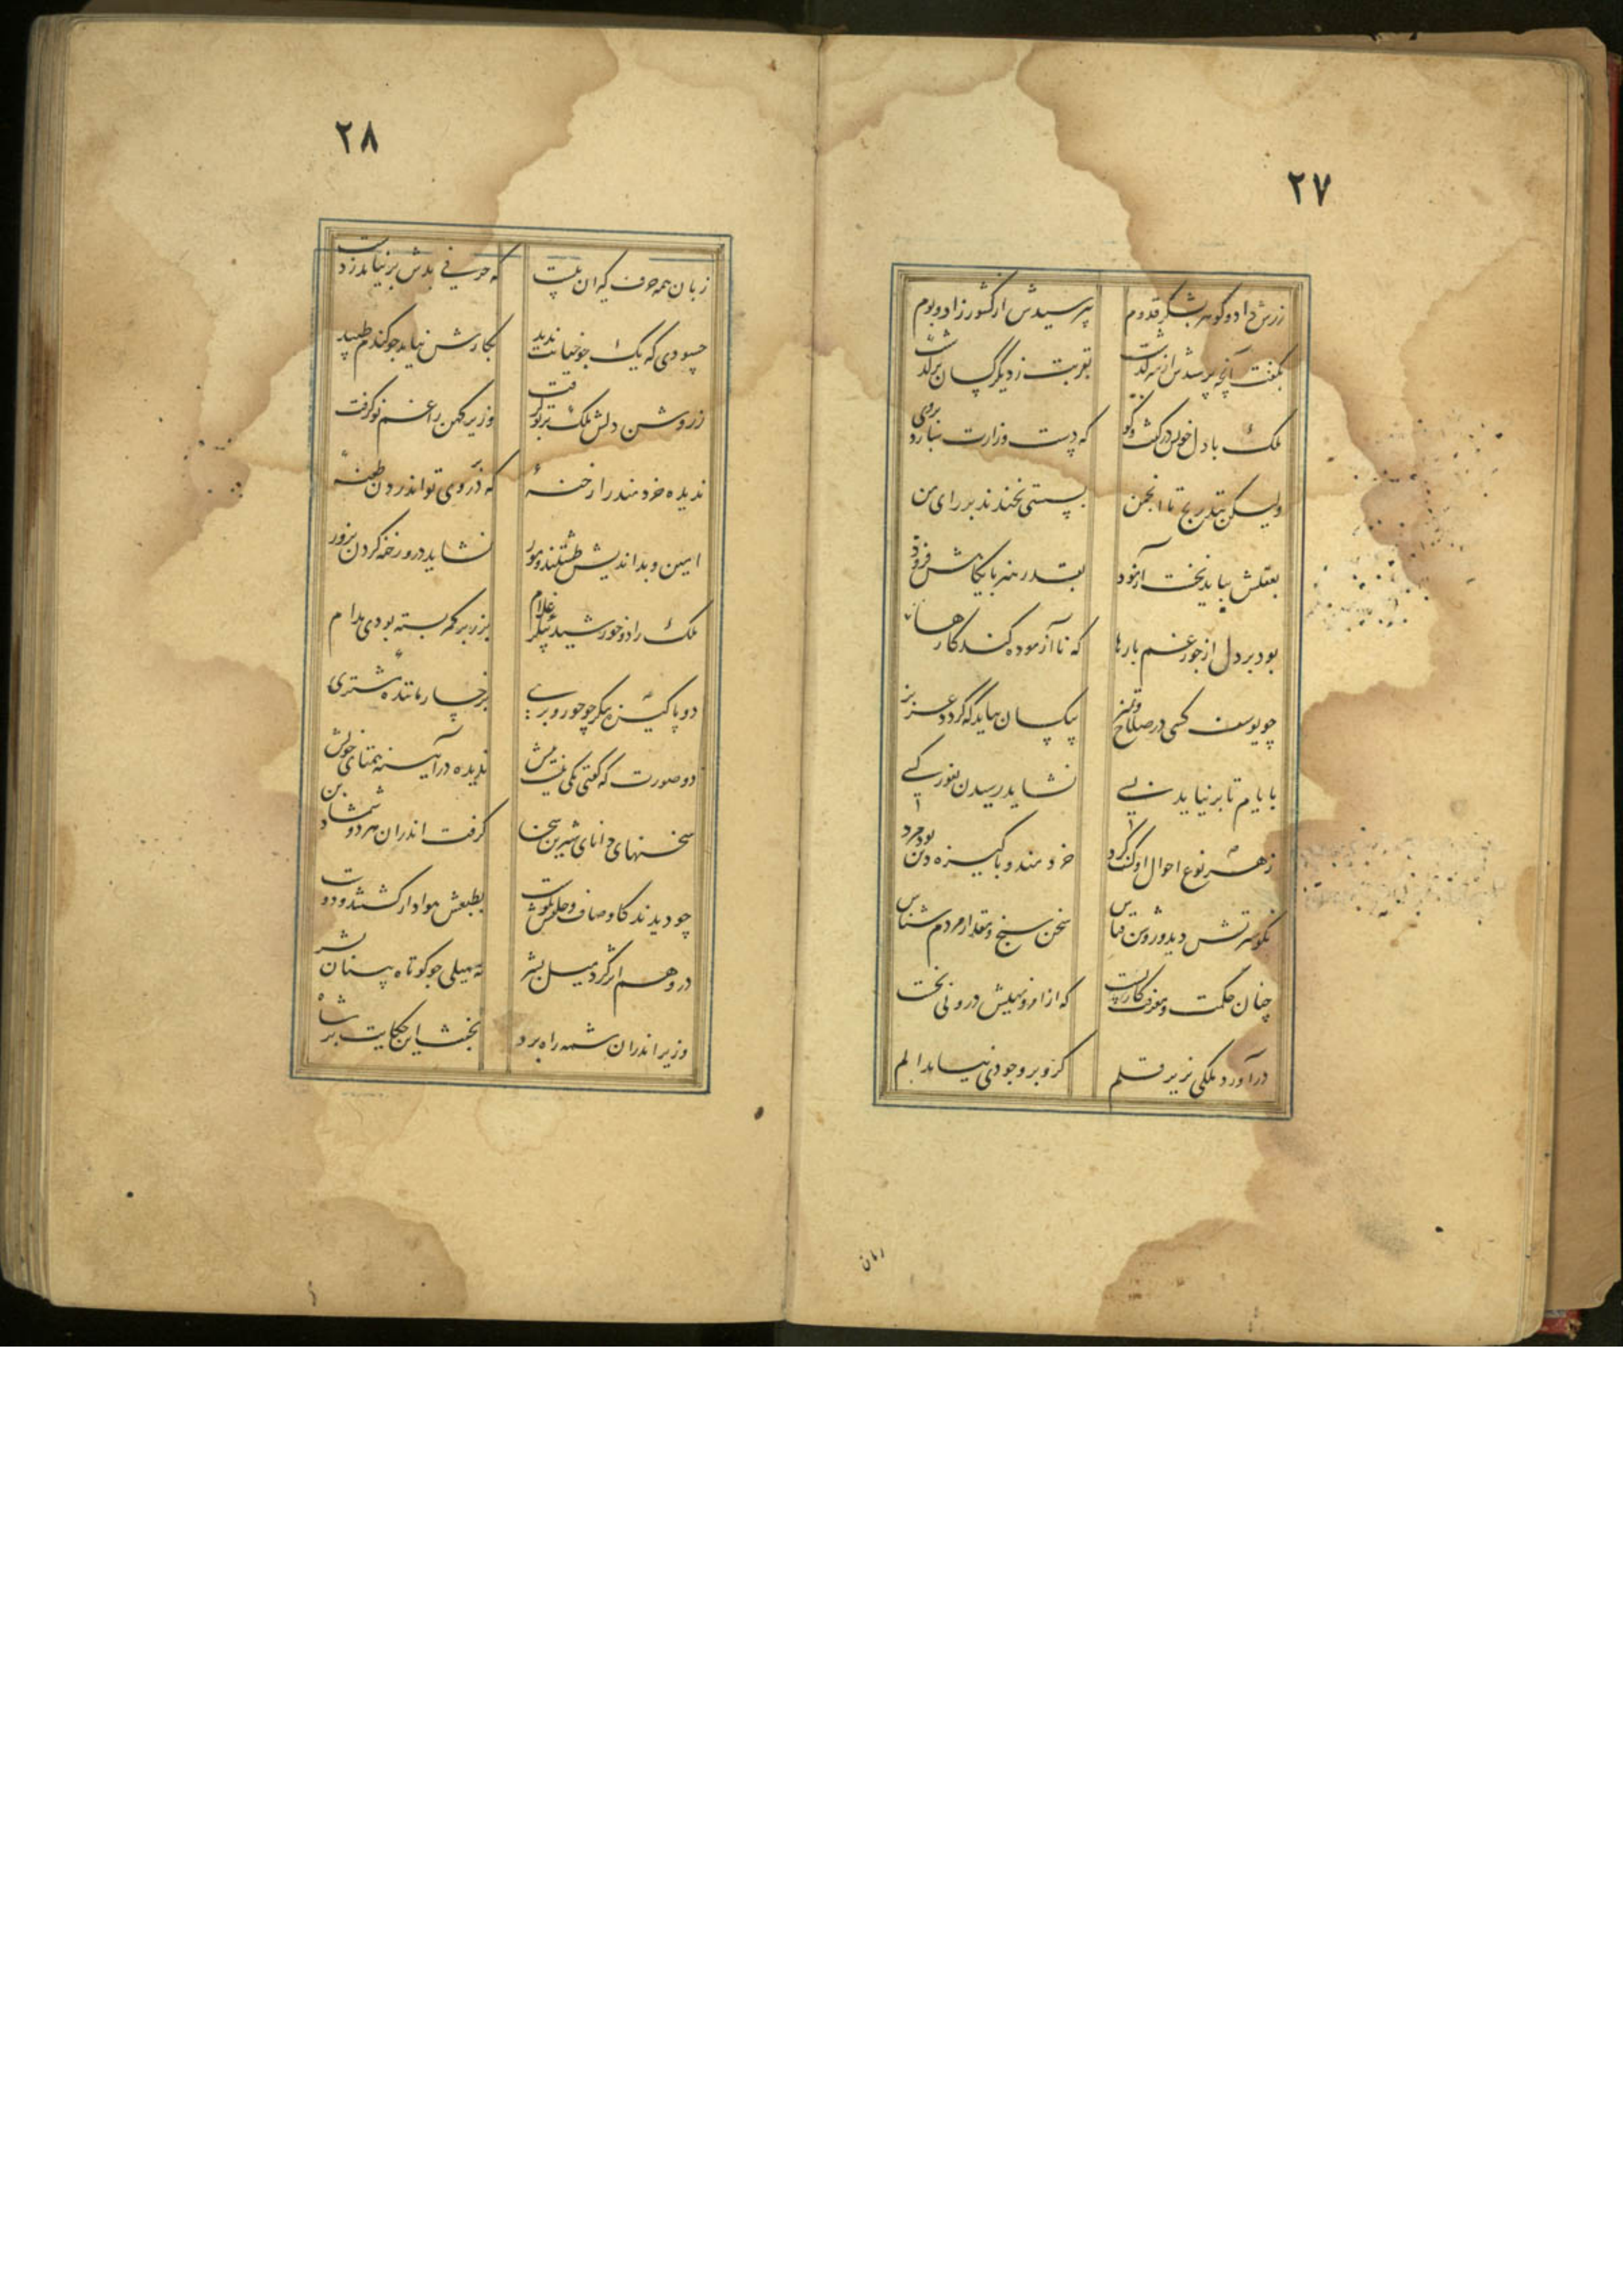 ۲۷
زرش داد و گوهر بشکر قدوم بپرسیدش از کشور زاد و بوم
بگفت آنچه پرسیدش از سرگذشت بقربت ز دیگر کسان برگذشت
ملک با دل خویش در گفت و گو که دست وزارت سپارد بدوی
ولیکن بتدریج تا انجمن بسستی نخندند بر رای من
بعقلش بباید نخست آزمود بقدر هنر پایگاهش فزود
بود بر دل از جور غم بارها که نا آزموده کند کارها
چو یوسف کسی در صلاح و تمیز بیکسال باید که گردد عزیز
بایام تا بر نیاید بسی نشاید رسیدن بغور کسی
ز هر نوع احوال او کشف کرد خردمند و پاکیزه دین بود مرد
نکو سیرتش دید و روشن قیاس سخن سنج و مقدار مردم شناس
چنان حکمت و معرفت کار بست که از امر و نهیش درونی نخست
در آورد ملکی بزیر قلم کزو بر وجودی نیامد الم
زبان
۲۸
زبان همه حرف گیران ببست که حرفی بدش بر نیامد ز دست
حسودی که یک جو خیانت ندید بکارش نیامد چو گندم طپید
ز روشن دلش ملک پرتو گرفت وزیر کهن را غم نو گرفت
ندید آن خردمند را رخنهٔ که در وی تواند زدن طعنهٔ
امین و بد اندیش طشتند و مور نشاید درو رخنه کردن بزور
ملک را دو خورشید پیکر غلام بزر بر کمر بسته بودی مدام
دو پاکیزه پیکر چو حور و پری برخسار مانندهٔ مشتری
دو صورت که گفتی یکی نیست بیش ندیده در آیینه همتای خویش
سخنهای دانای شیرین سخن گرفت اندران هر دو شمشاد بن
چو دیدند کاوصاف و خلقش نکوست بطبعش هوادار گشتند و دوست
درو هم اثر کرد میل بشر نه میلی چو کوتاه بینان بشر
وزیر اندران شمه راه برد بخبث این حکایت بر شاه